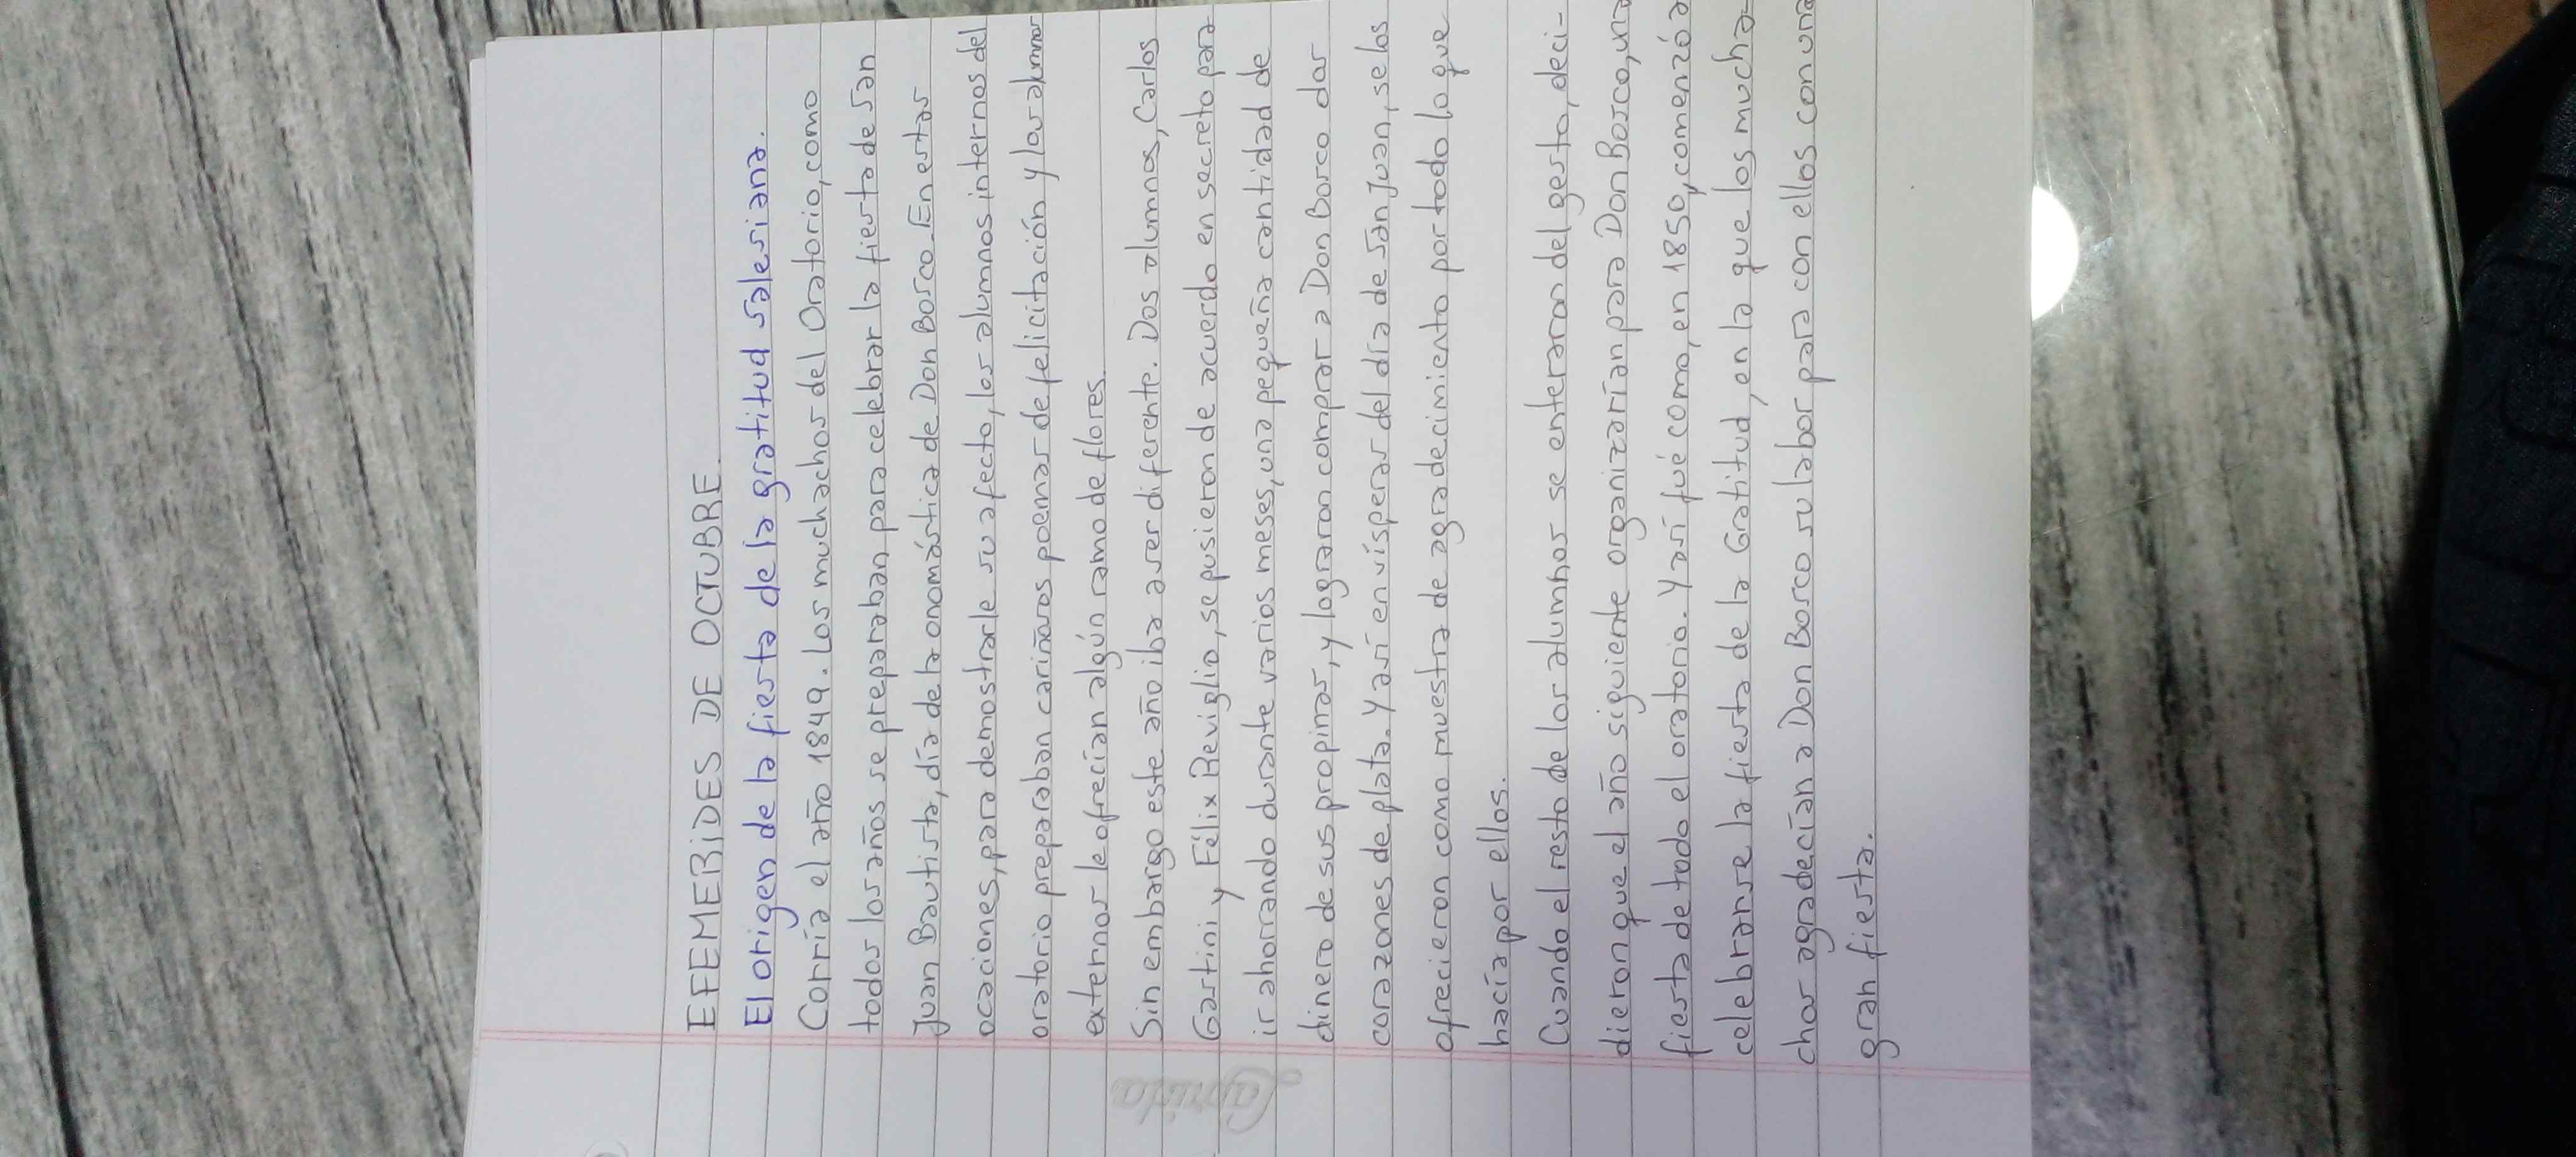 EFEMERIDES DE OCTUBRE
El origen de la fiesta de la gratitud salesiana.
Corría el año 1849. Los muchachos del Oratorio, como
todos los años se preparaban para celebrar la fiesta de San
Juan Bautista, día de la onomástica de Don Bosco. En estas
ocaciones, para demostrarle su afecto, los alumnos internos del
oratorio preparaban cariñosos poemas de felicitación y los alumnos
externos le ofrecían algún ramo de flores.
Sin embargo este año iba a ser diferente. Dos alumnos, Carlos
Gastini y Félix Reviglio, se pusieron de acuerdo en secreto para
ir ahorrando durante varios meses, una pequeña cantidad de
dinero de sus propinas, y lograron comprar a Don Bosco dos
corazones de plata. Y así en vísperas del día de San Juan, se los
ofrecieron como muestra de agradecimiento por todo lo que
hacía por ellos.
Cuando el resto de los alumnos se enteraron del gesto, deci-
dieron que el año siguiente organizarían para Don Bosco, una
fiesta de todo el oratorio. Y así fué como, en 1850, comenzó a
celebrarse la fiesta de la Gratitud, en la que los mucha-
chos agradecían a Don Bosco su labor para con ellos con una
gran fiesta.
Laprida